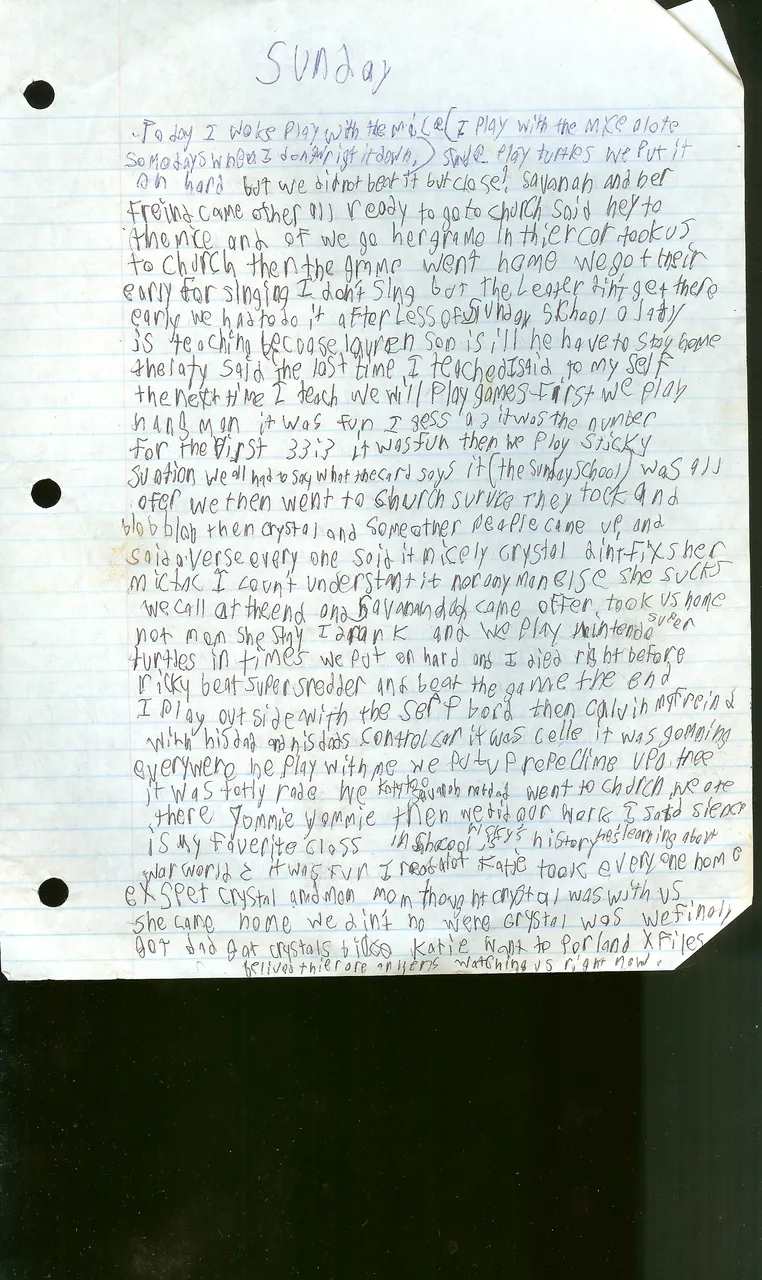 Sunday
Today I woke Play with the mice (I Play with the mice alote
somedays when I don't rigt it down,) Play turtles we Put it
on hard but we did not beat it but close! Savanah and her
Freind came other all ready to go to church said hey to
the mice and of we go her grame in thier car took us
to church then the gmme went home we got their
early for singing I don't sing but the Leater din't get there
early we had to do it after Less of Sunday School a lady
is teaching becoose lauren son is ill he have to stay home
the laty said the last time I teached I said to my self
the next time I teach we will Play games First we play
hang man it was fun I gess a 3 it was the number
for the first 33:3 it was fun then we Play sticky
suation we all had to say what the card says it (the sunday school) was all
ofer we then went to church survice They tock and
blob blob then crystal and some other people came up and
said a verse every one said it nicely crystal din't fix her
mictac I count understant it nor any man else she sucks
we call at the end and Savanan dad came offer took us home
not mom she stay I drank and we Play nintendo super
turtles in times we put on hard and I died right before
ricky beat super sredder and beat the game the end
I Play out side with the serf bord then calvin my Freind
with his dad and his dads control car it was celle it was gomning
everywere he Play with me we Put uP rePeclime uP a tree
it was totly rade we Katy too Savanah not dad went to church we ate
there Yommie yommie then we did our work I said sience
is my favorite class in shcool ricky's is history hes learning about
war world 2 it was fun I read alot Katie took every one home
exspet crystal and mom mom thought crystal was with us
she came home we din't no were crystal was we finaly
got dad got crystals Katie want to Porland X Files
belived thier are aniyens watching us right now.